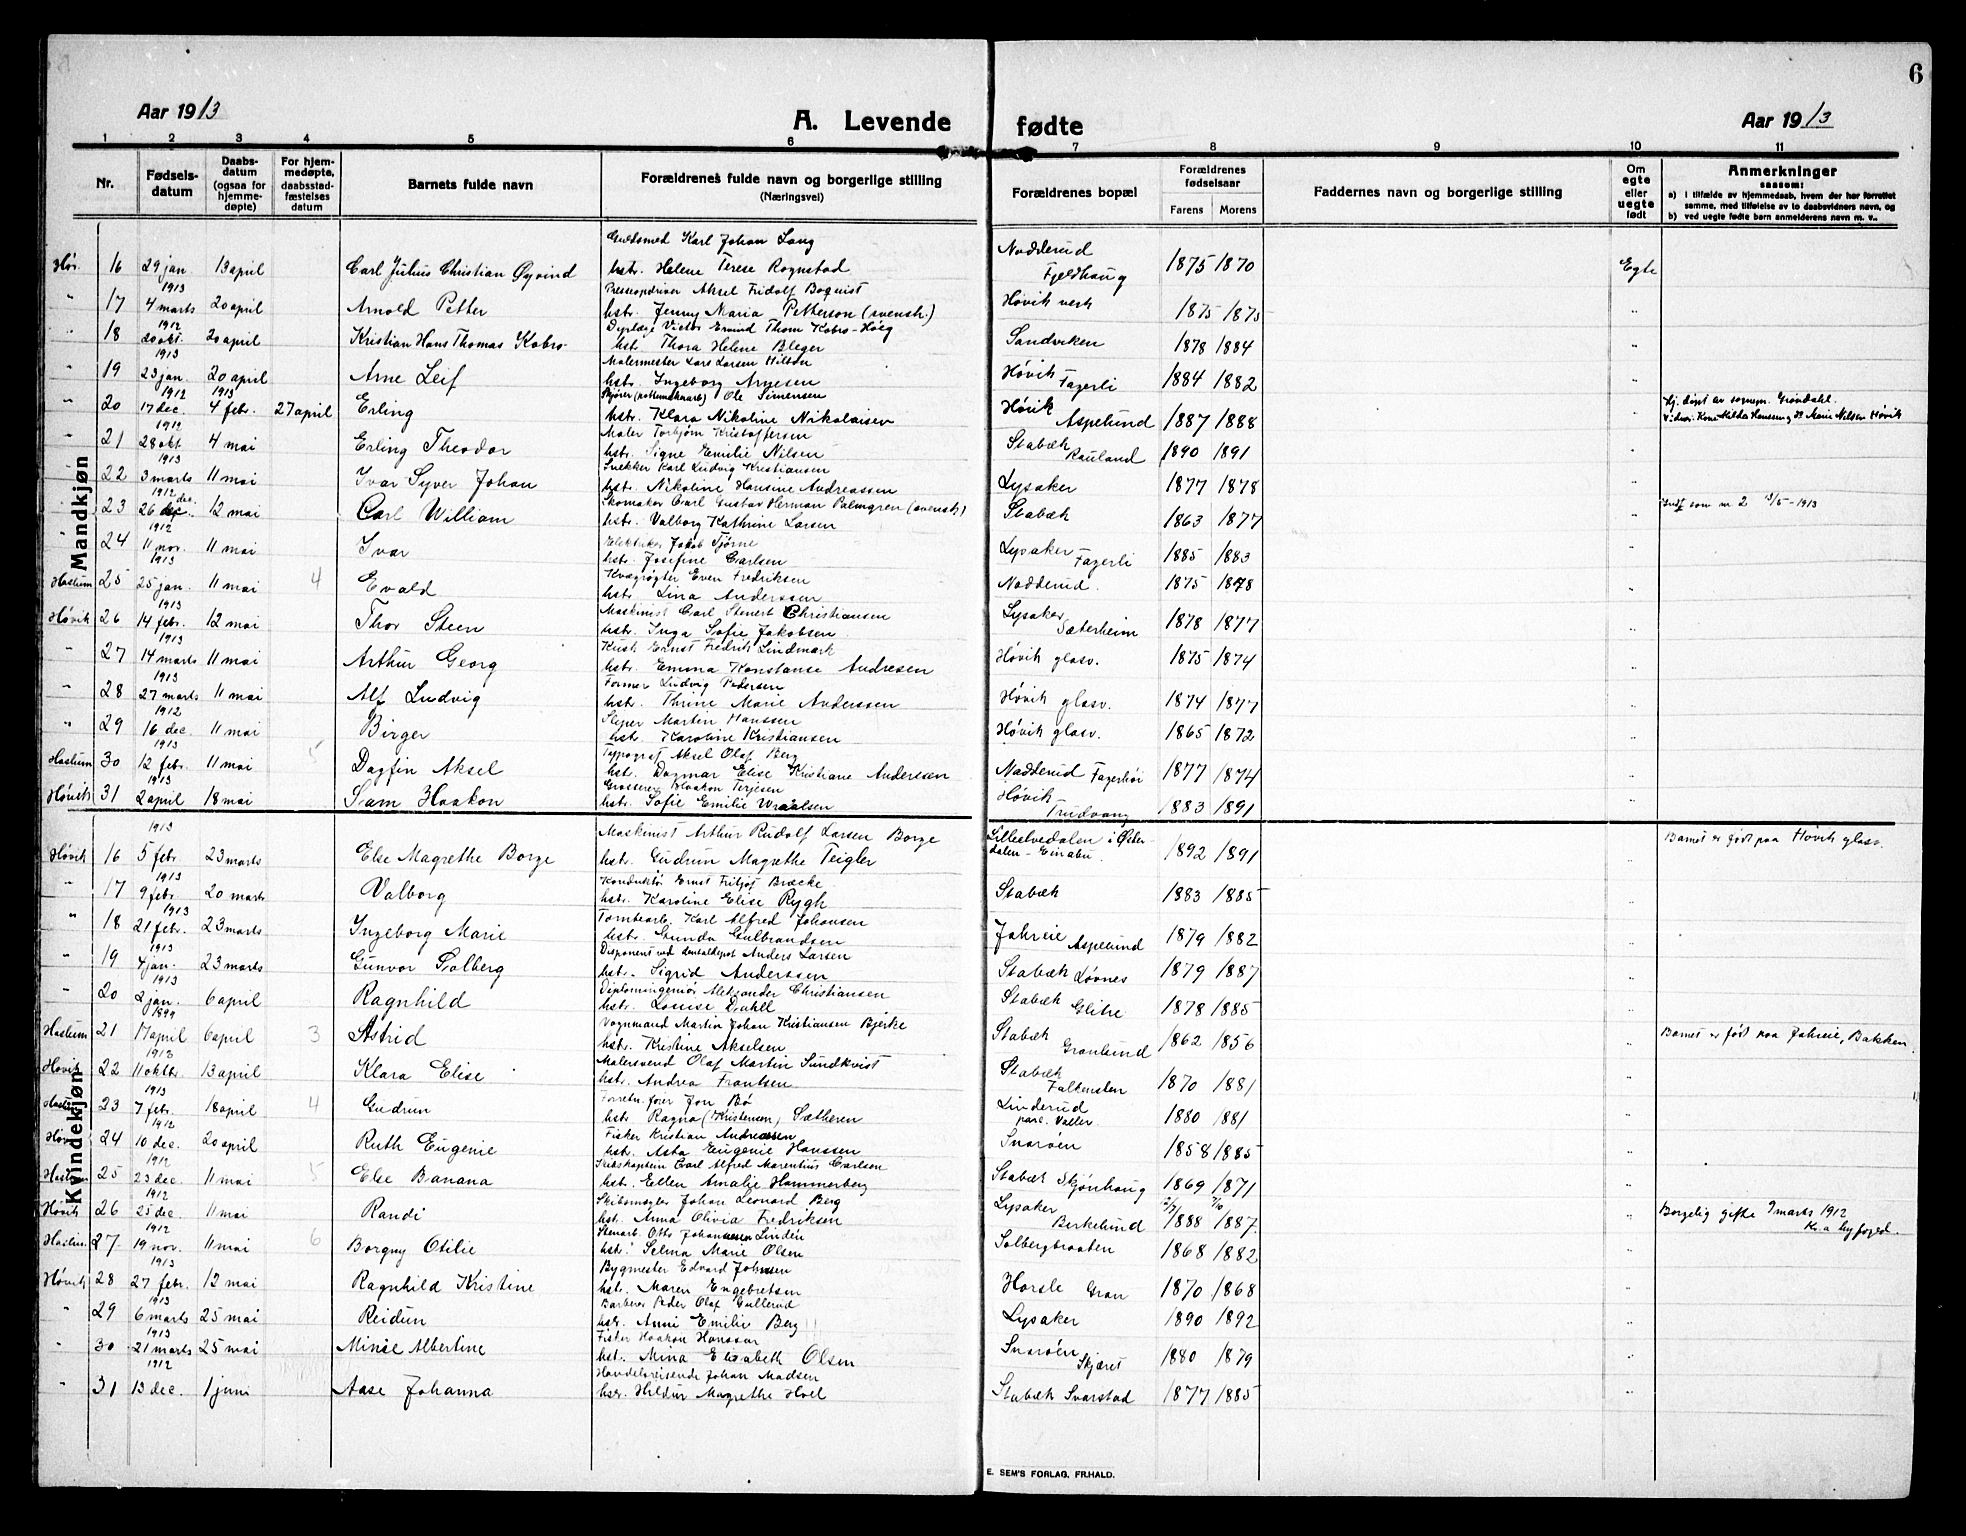 6
Aar 1913
A. Levende fødte
Aar 1913
1 2 3 4 5 6 7 8 9 10 11
Nr.
Fødsels-datum
Daabs-datum (ogsaa for hjemme-døpte)
For hjem-medøpte, daabsstad-fæstelses datum
Barnets fulde navn
Forældrenes fulde navn og borgerlige stilling (Næringsvei)
Forældrenes bopæl
Forældrenes fødselsaar
Farens Morens
Faddernes navn og borgerlige stilling
Om egte eller uegte født
Anmerkninger saasom:
a) i tilfælde av hjemmedaab, hvem der har forrettet samme, med tilføielse av to daabsvidners navn, og
b) ved uegte fødte barn anmelderens navn m. v..
Mandkjøn
Guldsmed Karl Johan Lang
Høv. 16 29 jan 13 april Carl Julius Christian Øyvind hstr. Helene Terese Rognstad Nadderud Fjeldhaug 1875 1870 Egte
1913 Presseopdriver Aksel Fridolf Boquist
" 17 4 marts 20 april Arnold Petter hstr. Jenny Maria Petterson (svensk.) Høvik verk 1875 1875 "
1912 Dyrlæge Victor Eivind Thom Kobro-Høeg
" 18 20 okt. 20 april Kristian Hans Thomas Kobro- hst. Thora Helene Bleger Sandviken 1878 1884 "
1913 Malermester Lars Larsen Hilton
" 19 23 jan. 20 april Arne Leif hstr. Ingeborg Arnesen Høvik Fagerli 1884 1882 "
1912 1913 Ole Simensen
" 20 17 dec. 4 febr. 27 april Erling hstr. Klara Nikoline Nikolaisen Høvik Aspelund 1887 1888 " Hj. døpt av sogнepr. Grøndahl.
1912 Maler Torbjørn Kristoffersen
" 21 28 okt. 4 mai Erling Theodor hstr. Signe Emilie Nilsen Stabæk Rauland 1890 1891 "
1913 Snekker Karl Ludvig Kristiansen
" 22 3 marts 11 mai Ivar Syver Johan hstr. Nikoline Hansine Andreassen Lysaker 1877 1878 "
1912 Skomaker Carl Gustav Herman Palmgren (svensk)
" 23 26 dec. 12 mai Carl William hstr. Valborg Kathrine Larsen Stabæk 1863 1877 " Indf som nr 2 3/5-1913
1912 Elektriker Jakob Tjørne
" 24 11 nov. 11 mai Ivar hstr. Josefine Carlsen Lysaker Fagerli 1885 1883 "
1913 Kvægrøgter Even Fredriksen
Haslum 25 25 jan. 11 mai 4 Evald hstr. Lina Anderssen Nadderud. 1875 1878 "
1913 Maskinist Carl Stenert Christiansen
Høvik 26 14 febr. 12 mai Thor Steen hstr. Inga Sofie Jakobsen Lysaker Sæterheim 1878 1877 "
1913 Kusk Ernst Fredrik Lindmark
" 27 14 marts 11 mai Arthur Georg hstr. Emma Konstanse Andresen Høvik glasv. 1875 1874 "
1913 Former Ludvig Pedersen
" 28 27 marts 11 mai Alf Ludvig hstr. Thrine Marie Anderssen Høvik glasv. 1874 1877 "
1912 Sliper Martin Hanssen
" 29 16 dec. 11 mai Birger hst. Karoline Kristiansen Høvik glasv. 1865 1872 "
1913 Typograf Aksel Olaf Berg
Haslum 30 12 febr. 11 mai 5 Dagfin Aksel hst. Dagmar Elise Kristiane Andersen Nadderud Fagerhøi 1877 1874 "
1913 Grosserer Haakon Terjesen
Høvik 31 2 april 18 mai Sam Haakon hstr. Sofie Emilie Wraalsen Høvik Trudvang 1883 1891 "
Kvindekjøn
1913 Maskinist Arthur Rudolf Larsen Borge
Høvik 16 5 febr. 23 marts Else Magrethe Borge hstr. Gudrun Magrethe Teigler Lilleelvedalen i Østerdalen - Einabu. 1892 1891 " Barnet er født paa Høvik glasv.
1913 Konduktør Ernst Fritjof Bræcke
" 17 9 febr. 20 marts Valborg hstr. Karoline Elise Rygh Stabæk 1883 1885 "
1913 Tomtearb. Karl Alfred Johansen
" 18 21 febr. 23 marts Ingeborg Marie hstr. Gunda Gulbrandsen Jahreie Aspelund 1879 1882 "
1913 Disponent ved Anders Larsen
" 19 4 jan. 23 marts Gunvor Solberg hstr. Sigrid Anderssen Stabæk Løvnes 1879 1887 "
1913 Diplomingeniør Aleksander Christiansen
" 20 2 jan. 6 april Ragnhild hstr. Louise Dahll Stabæk Glitre 1878 1885 "
1899 Vognmand Martin Johan Kristiansen Bjerke
Haslum 21 17 april 6 april 3 Astrid hstr. Kristine Akselsen Stabæk Granlund 1862 1856 " Barnet er født paa Jahreie, Bakken.
1912 Malersvend Olaf Martin Sundkvist
Høvik 22 11 oktbr. 13 april Klara Elise hstr. Andrea Frantsen Stabæk Falkensten 1870 1881 "
1913 Forretn.fører Jon Bø
Haslum 23 7 febr. 18 april 4 Gudrun hstr. Ragna (Kristensen) Sætheren Linderud parc. Valler 1880 1881 "
1912 Fisker Kristian Andreassen
Høvik 24 10 dec. 20 april Ruth Eugenie hstr. Asta Eugenie Hanssen Snarøen 1858 1885 "
1912 Skibskaptein Carl Alfred Marentius Carlsen
Haslum 25 23 dec. 11 mai 5 Else Banana hstr. Ellen Amalie Hammerberg Stabæk Skjønhaug 1869 1871 "
1912 Skibsmægler Johan Leonard Berg
Høvik 26 25 dec. 11 mai Randi hst. Anna Olivia Fredriksen Lysaker Birkelund 1888 1887 " Borgelig gifte 9 marts 1912 Kr.a byfoged.
1912 Stenarb. Otto Johannesen Linden
Haslum 27 19 nov. 11 mai 6 Borgny Otilie hstr. Selma Marie Olsen Solbergbraaten 1868 1882 "
1913 Bygmester Edvard Johnsen
Høvik 28 27 febr. 12 mai Ragnhild Kristine hst. Maren Engebretsen Horsle Gran 1870 1868 "
1913 Barberer Peder Olaf Gullerud
" 29 6 marts 25 mai Reidun hstr. Anni Emilie Berg Lysaker 1890 1892 "
1913 Fisker Haakon Hanssen
" 30 21 marts 25 mai Minie Albertine hst. Mina Elisabeth Olsen Snarøen Skjæret 1880 1879 "
1912 Handelsreisende Johan Madsen
" 31 13 dec. 1 juni Aase Johanna hstr. Hildur Magrethe Hoel Stabæk Svarstad 1877 1885 "
E. SEM'S FORLAG, FR.HALD.